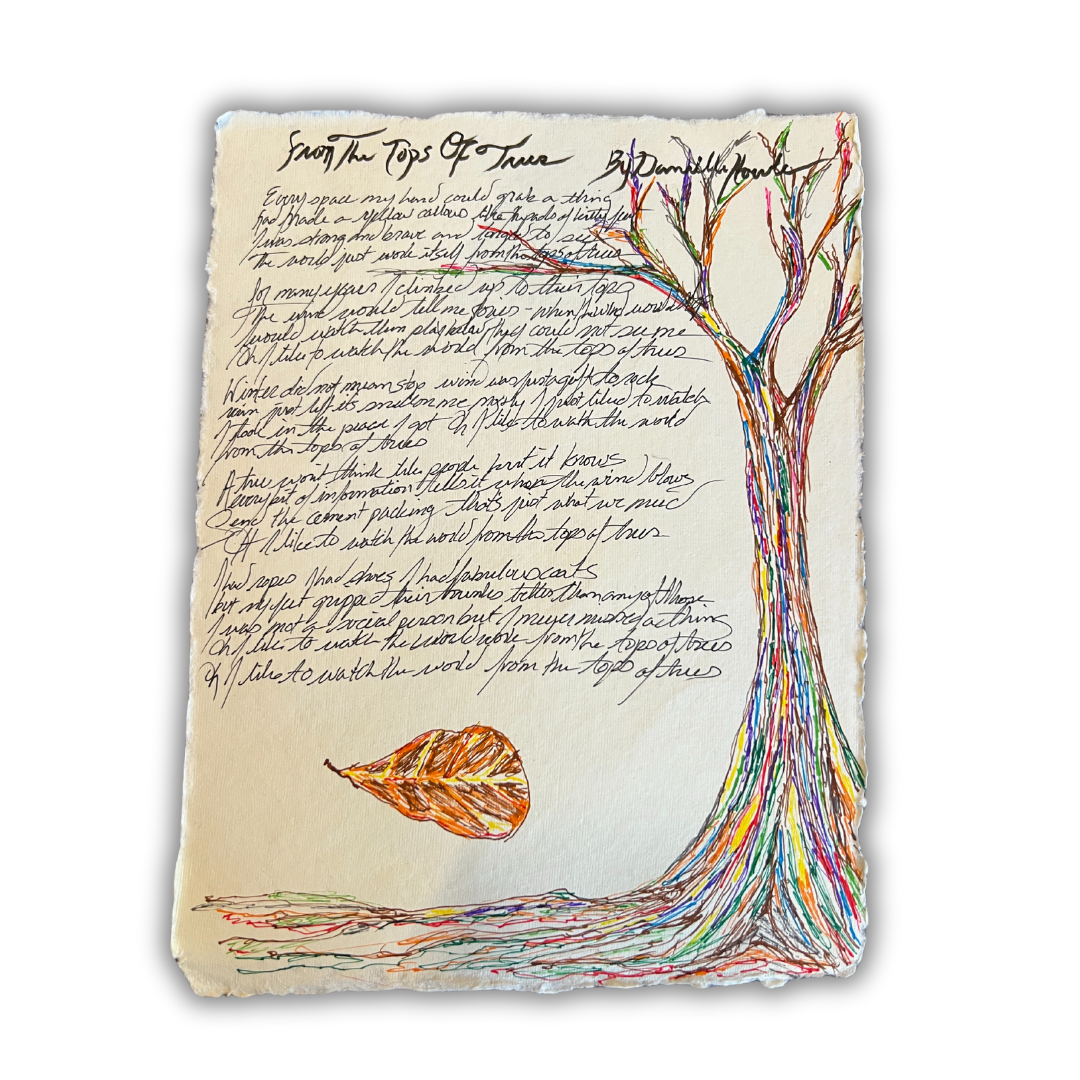 From The Tops Of Trees
By Daniella
Every space my hand could grab a thing
had made a yellow callous like the pads of dirty feet
I was strong and brave and longed to see
the world just work itself from the tops of trees
for many years I climbed up to their tops
The wind would tell me stories - when the wind would
would watch them play below they could not see me
Oh I like to watch the world from the tops of trees
Winter did not mean stop wind was just a gift to rock
rain just left its smell on me mostly I just liked to watch
I took in the peace I got Oh I like to watch the world
from the tops of trees
A tree wont think like people but it knows
every bit of information tells it when the wind blows
Send the cement packing that's just what we need
Oh I like to watch the world from the tops of trees
I had ropes I had shoes I had fabulous coats
but my feet gripped their better than any of those
I was not a social person but I never missed a thing
Oh I like to watch the world move from the tops of trees
Oh I like to watch the world from the tops of trees